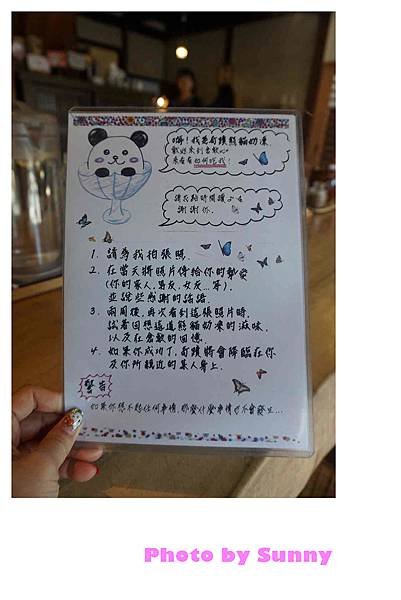 嗨! 我是奇蹟熊貓奶凍.
歡迎來到倉敷心
來看看如何吃我!
請花點時間讀一下
謝謝你.
1. 請為我拍張照.
2. 在當天將照片傳給你的摯愛
(你的家人,男友,女友...等),
並說些感謝的話語.
3. 兩周後,再次看到這張照片時,
試著回想這道熊貓奶凍的滋味,
以及在倉敷的回憶.
4. 如果你成功了,奇蹟將會降臨在你
及你所親近的某人身上.
警告
如果你想不起任何事情,那麼什麼事情也不會發生...
Photo by Sunny